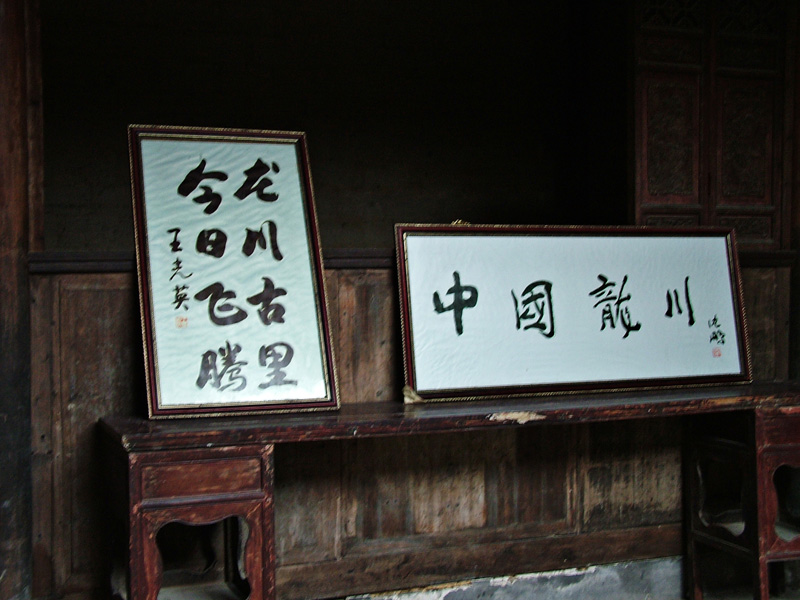 龙川古里
今日飞腾
王光英
中國龍川
沈鹏